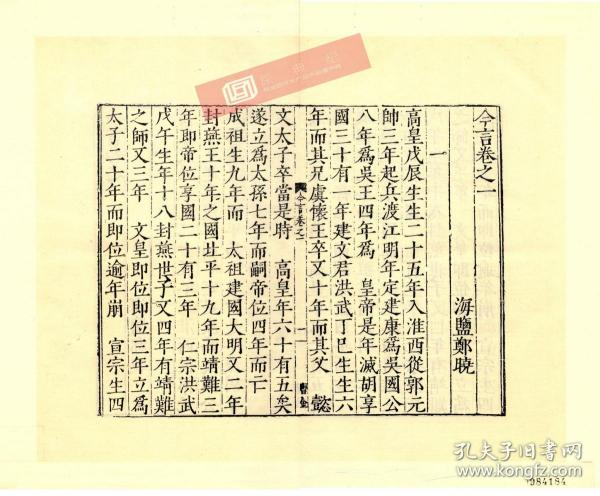 今言卷之一
海鹽鄭曉
一
高皇戊辰生生二十五年入淮西從郭元
帥三年起兵渡江明年定建康爲吳國公
八年爲吳王四年爲 皇帝是年滅胡享
國三十有一年建文君洪武丁巳生生六
年而其兄虞懷王卒又十年而其父 懿
今言卷之一
一
文太子卒當是時 高皇年六十有五矣
遂立爲太孫七年而嗣帝位四年而亡
成祖生九年而 太祖建國大明又二年
封燕王十年之國北平十九年而靖難三
年即帝位享國二十有三年 仁宗洪武
戊午生年十八封燕世子又四年有靖難
之師又三年 文皇即位即位三年立爲
太子二十年而即位逾年崩 宣宗生四
孔夫子旧书网
www.kongfz.com
0984184